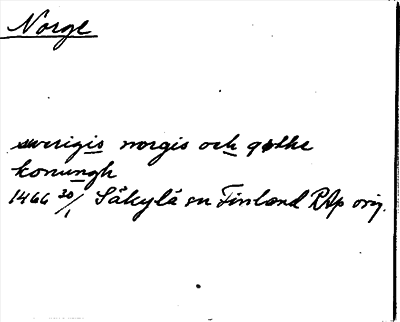 Norge
swerigis norgis och gøthe
konungh
1466 30/1 Säkylä sn Finland RAp orig.